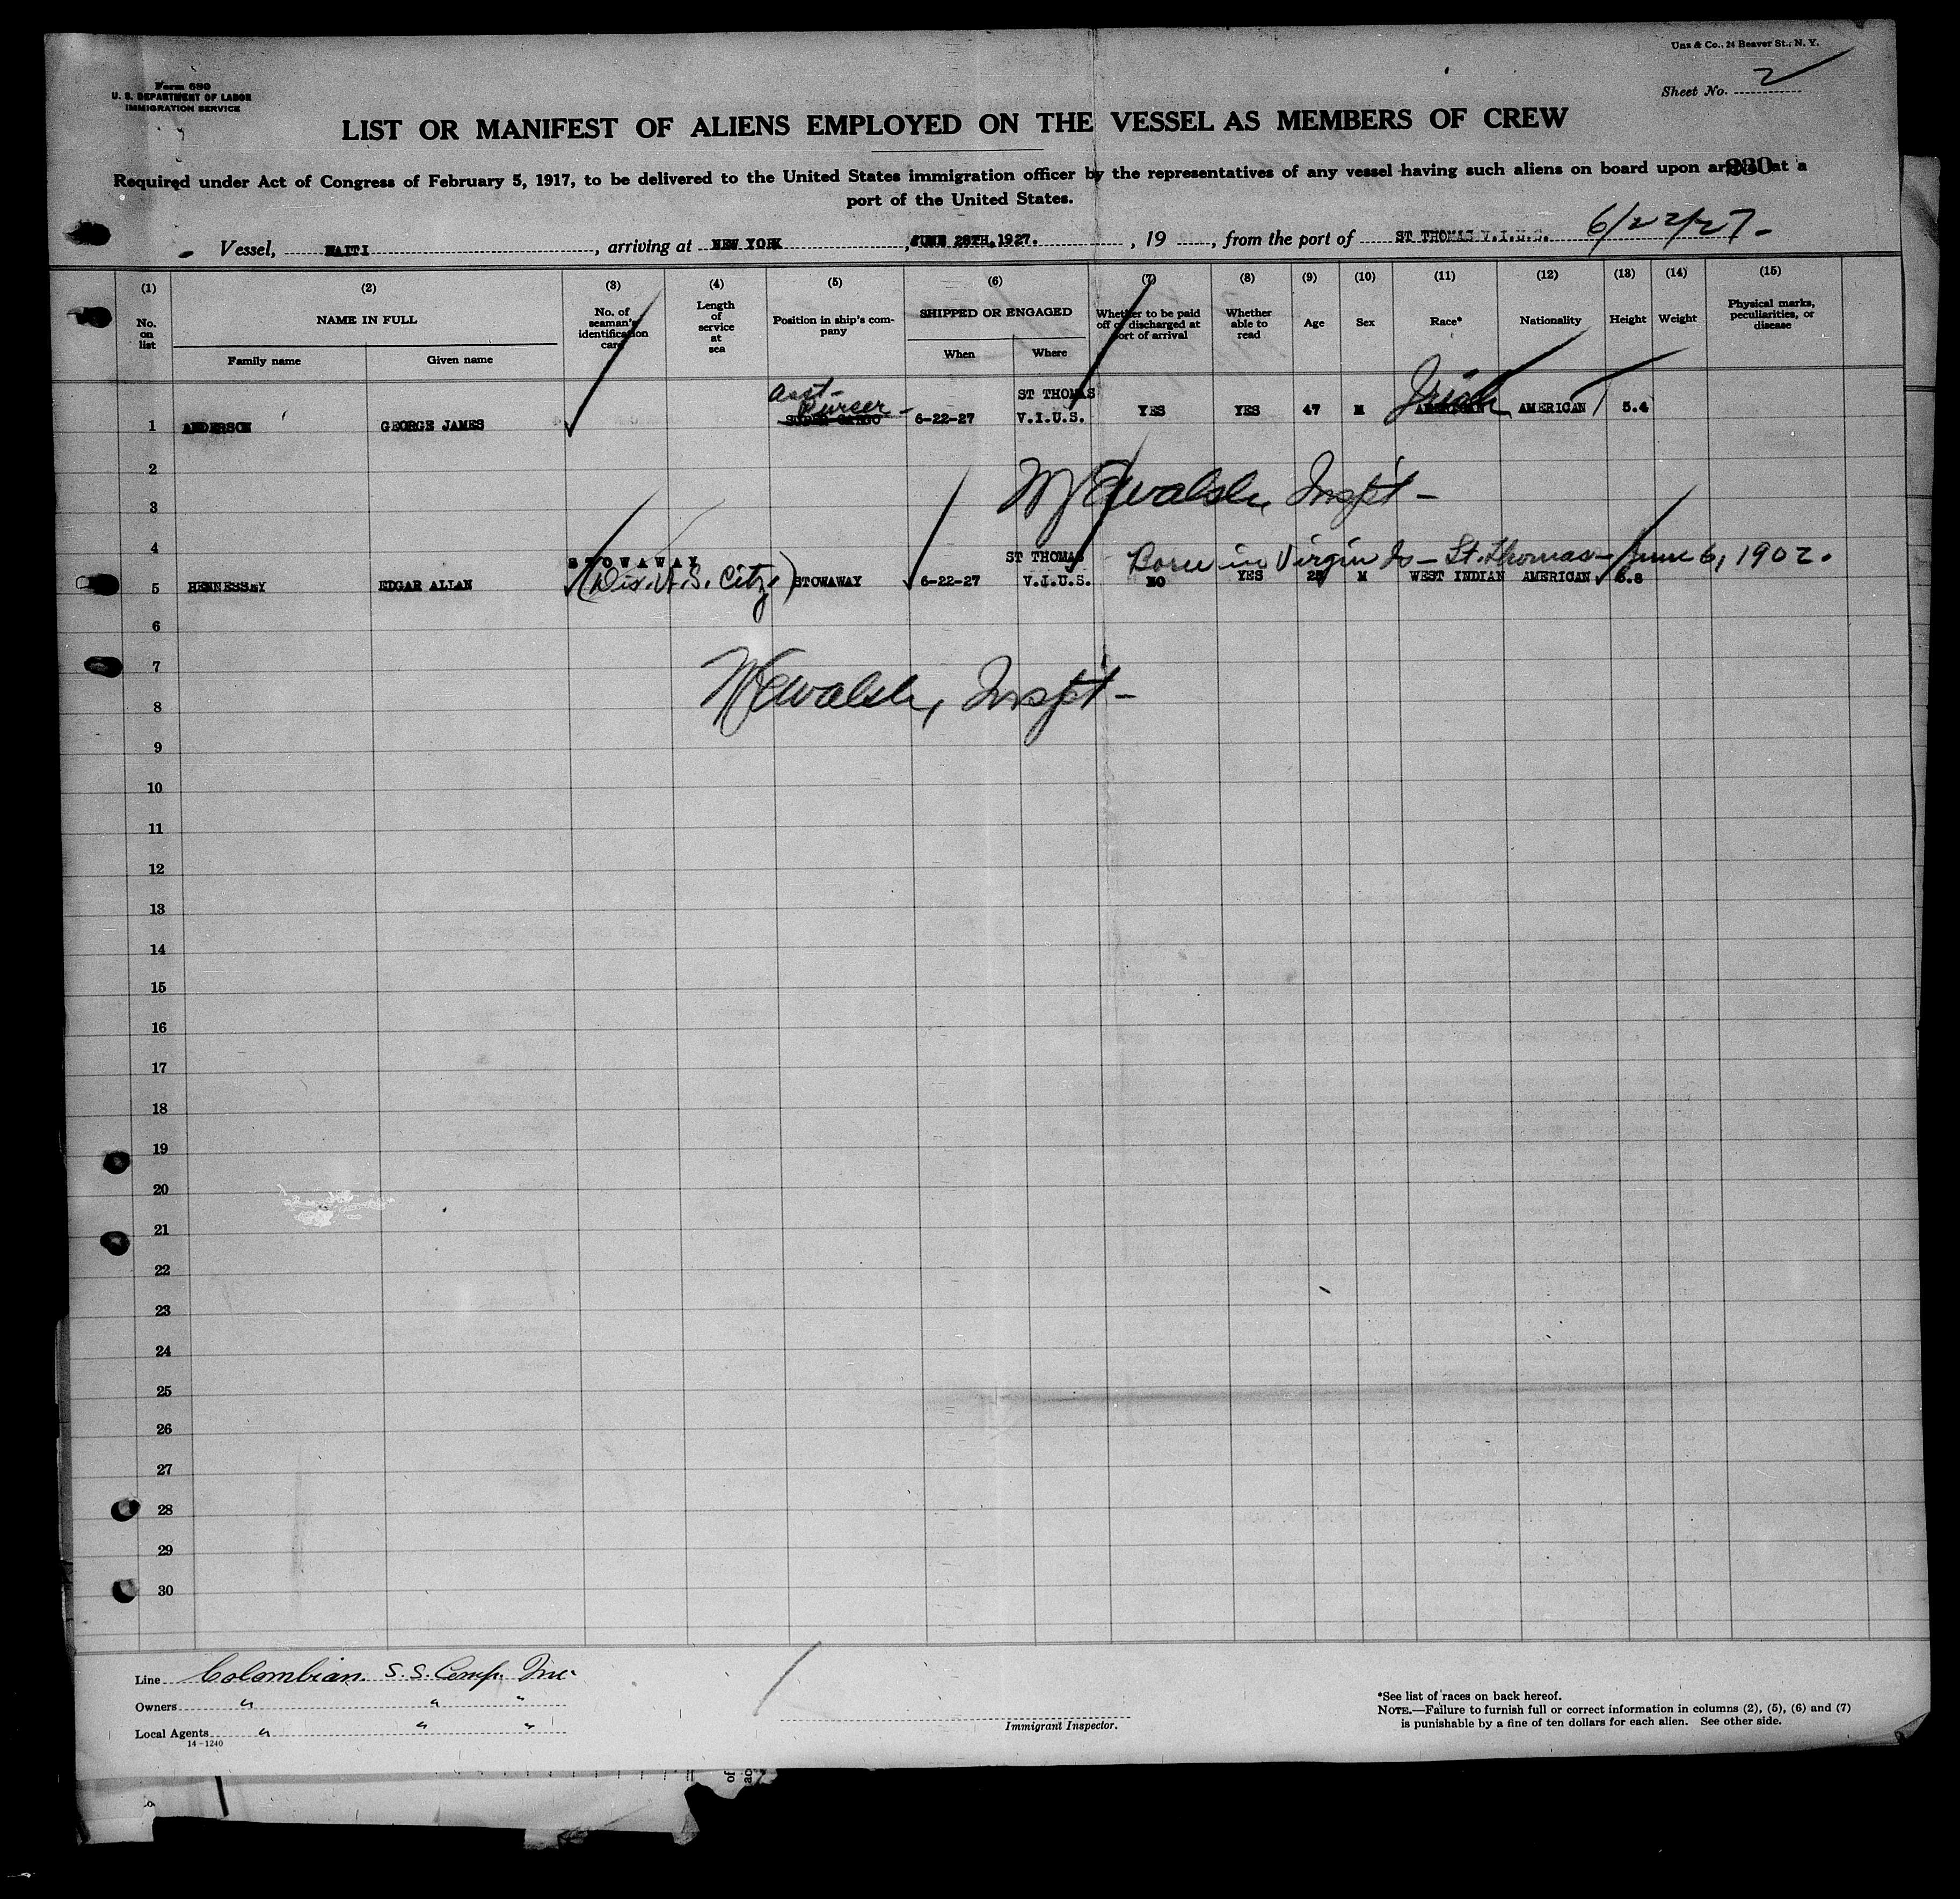 Unz & Co., 24 Beaver St., N. Y.
Form 680
U. S. DEPARTMENT OF LABOR
IMMIGRATION SERVICE
Sheet No. 2
LIST OR MANIFEST OF ALIENS EMPLOYED ON THE VESSEL AS MEMBERS OF CREW
330
Required under Act of Congress of February 5, 1917, to be delivered to the United States immigration officer by the representatives of any vessel having such aliens on board upon arrival at a
port of the United States.
Vessel, HAITI, arriving at NEW YORK, JUNE 28TH.1927., 19 , from the port of ST THOMAS V.I.U.S. 6/22/27-
(1) (2) (3) (4) (5) (6) (7) (8) (9) (10) (11) (12) (13) (14) (15)
No. on list NAME IN FULL Family name Given name No. of seaman's identification card Length of service at sea Position in ship's company SHIPPED OR ENGAGED When Where Whether to be paid off or discharged at port of arrival Whether able to read Age Sex Race* Nationality Height Weight Physical marks, peculiarities, or disease
Asst-
Purser-
1 ANDERSON GEORGE JAMES SUPER CARGO 6-22-27 ST THOMAS V.I.U.S. YES YES 47 M Irish AMERICAN 5.4
2
Walsh, Inspt-
3
4 STOWAWAY Born in Virgin Is - St. Thomas - June 6, 1902.
5 HENNESSEY EDGAR ALLAN (Dis. U.S. Citz) STOWAWAY 6-22-27 ST THOMAS V.I.U.S. NO YES 25 M WEST INDIAN AMERICAN 5.8
6
7
Walsh, Inspt-
8
9
10
11
12
13
14
15
16
17
18
19
20
21
22
23
24
25
26
27
28
29
30
Line Colombian S.S. Comp. Inc.
Owners " " "
Local Agents " " "
14-1240
Immigrant Inspector.
*See list of races on back hereof.
NOTE.—Failure to furnish full or correct information in columns (2), (5), (6) and (7)
is punishable by a fine of ten dollars for each alien. See other side.